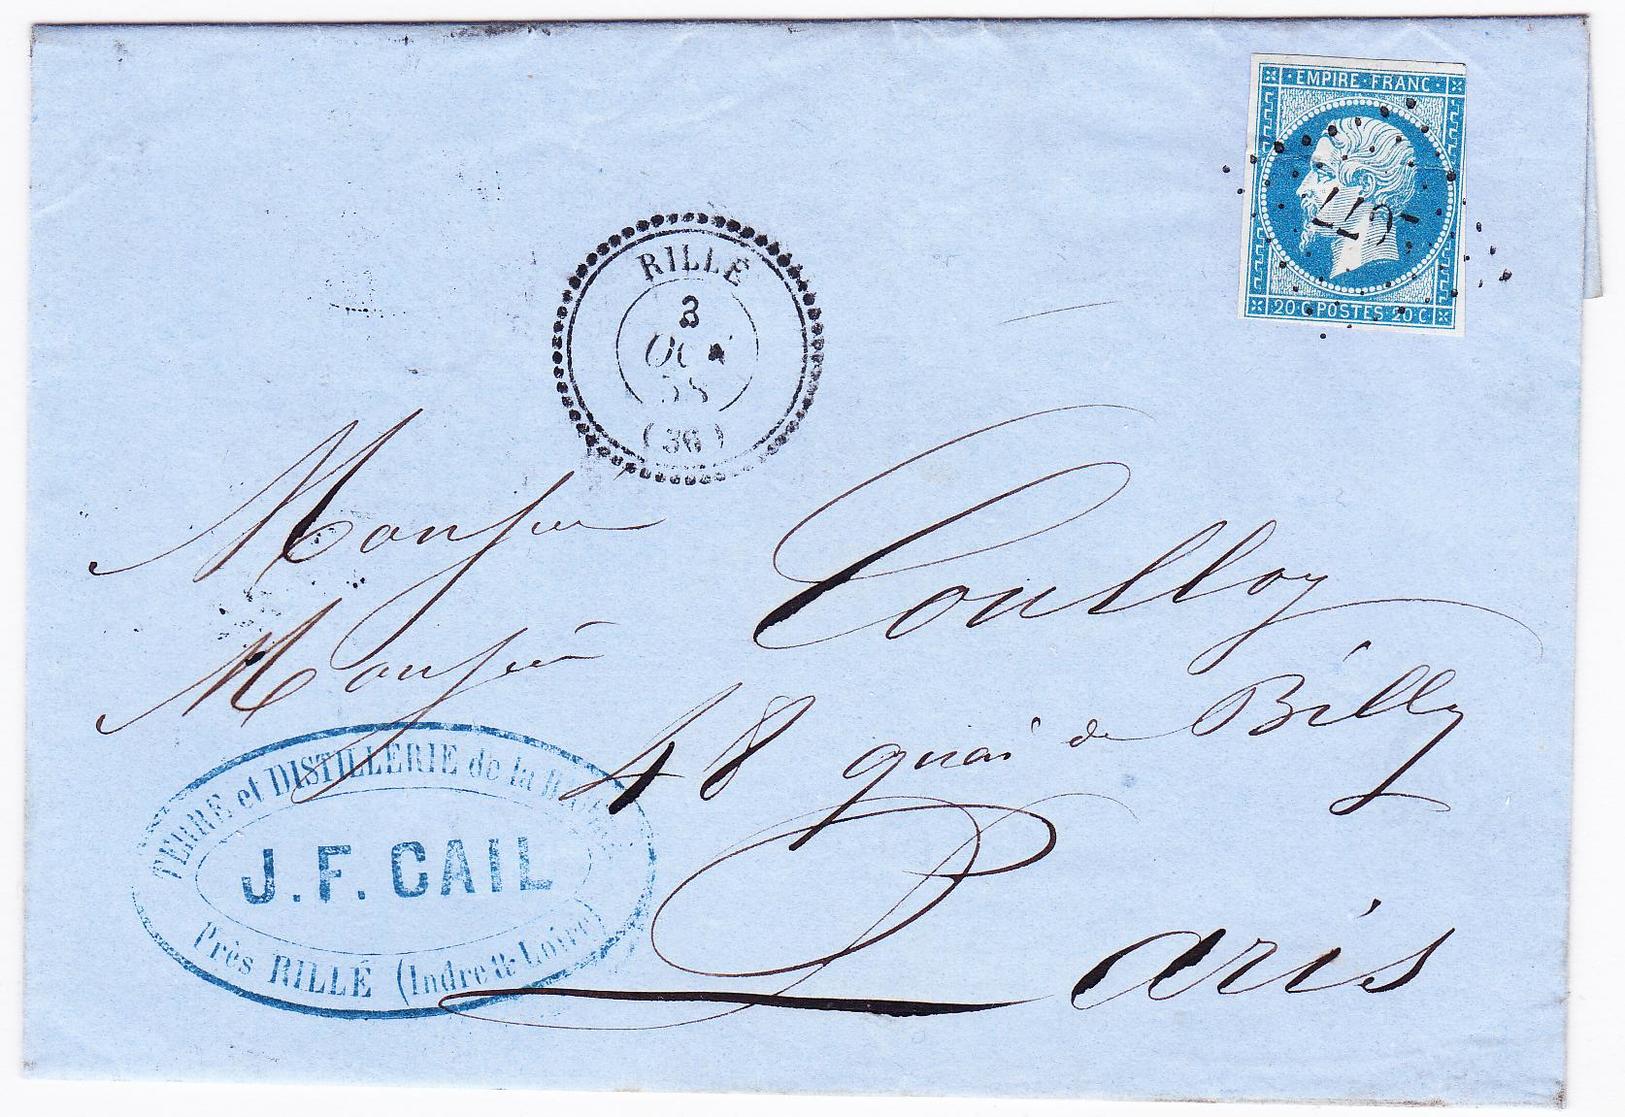 EMPIRE·FRANC·
20·C POSTES·20·C
RILLÉ
3
OCT
58
(36)
Monsieur
Monsieur Coulloy
48 quai de Billy
Paris
TERRE et DISTILLERIE de la
J.F. CAIL
Près RILLÉ (Indre & Loire)